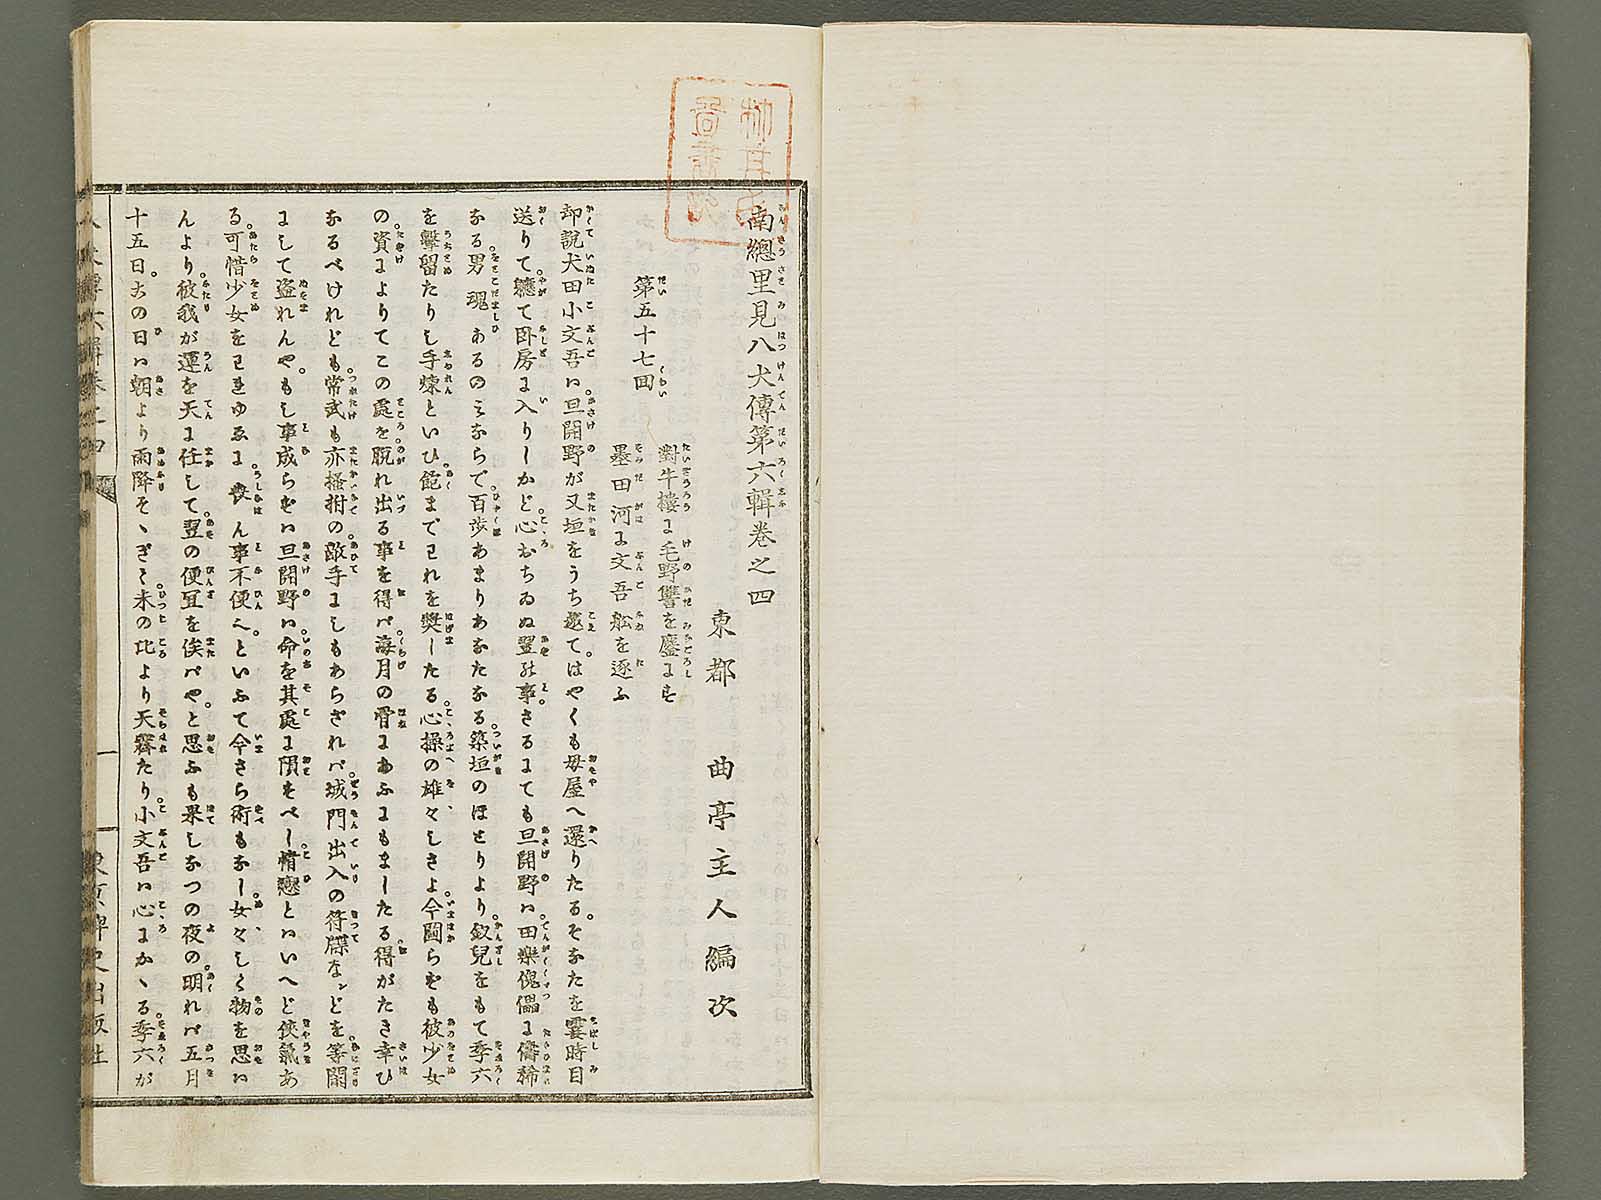 南總里見八犬傳第六輯卷之四
東都 曲亭主人編次
第五十七回
對牛樓に毛野讐を鏖にす
墨田河に文吾舩を逐ふ
却說犬田小文吾ハ。旦開野が又垣をうち越て。はやくも母屋へ還りたる。そなたを霎時目
送りて軈て臥房に入りしかど。心おちゐぬ翌の事。さるにても旦開野ハ。田樂傀儡に儔稀
なる男魂あるのミならで。百歩あまりあなたなる。築垣のほとりより。釵兒をもて季六
を擊留たりし手煉といひ。飽までわれを奬したる。心操の雄々しさよ。今圖らずも彼少女
の。資によりてこの處を。脫れ出る事を得バ。海月の骨にあふにもましたる。得がたき幸ひ
なるべけれども。常武も亦搔拊の。敵手にしもあらざれバ。城門出入の符牒なンどを。等閑
にして盜れんや。もし事成らずハ旦開野ハ。命を其處に隕すべし。情戀とハいへど俠氣あ
る。可惜少女をわれゆゑに。喪ん事不便也。といふて今さら術もなし。女々しく物を思ハ
んより。彼我が運を天に任して。翌の便宜を俟バや。と思ふも果しなつの夜の。明れバ五月
十五日。この日ハ朝より雨降そゝぎて。未の比より天霽たり。小文吾ハ心にかゝる。季六が